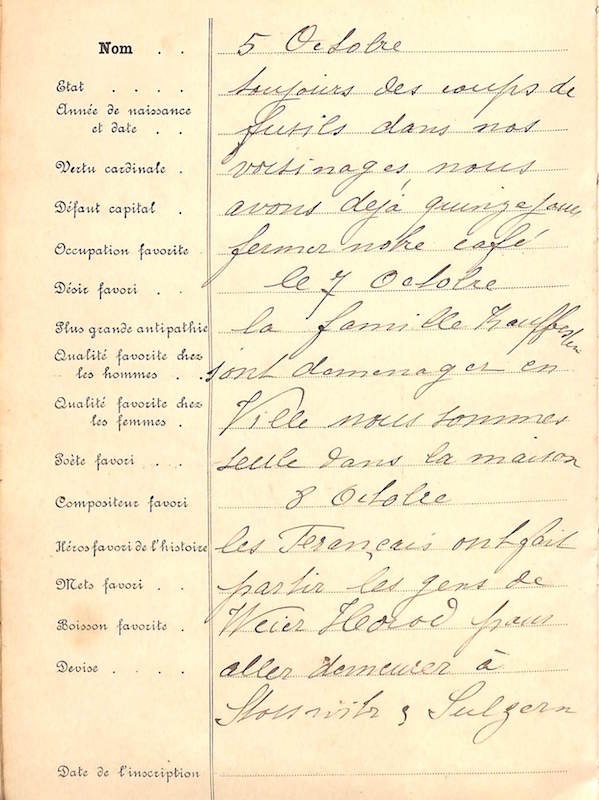 Nom . .
Etat . . . .
Année de naissance
et date . .
Vertu cardinale .
Défaut capital .
Occupation favorite
Désir favori . .
Plus grande antipathie
Qualité favorite chez
les hommes . .
Qualité favorite chez
les femmes .
Poète favori . .
Compositeur favori
Héros favori de l'histoire
Mets favori . .
Boisson favorite .
Devise . . . .
Date de l'inscription
5 Octobre
toujours des coups de
fusils dans nos
voisinages nous
avons dejà quinze jours
fermer notre café
le 7 Octobre
la famille
sont demenager en
Ville nous sommes
seule dans la maison
8 Octobre
les Français ont fait
partir les gens de
Weier Horod pour
aller demeurer à
Stosswihr & Sulzern